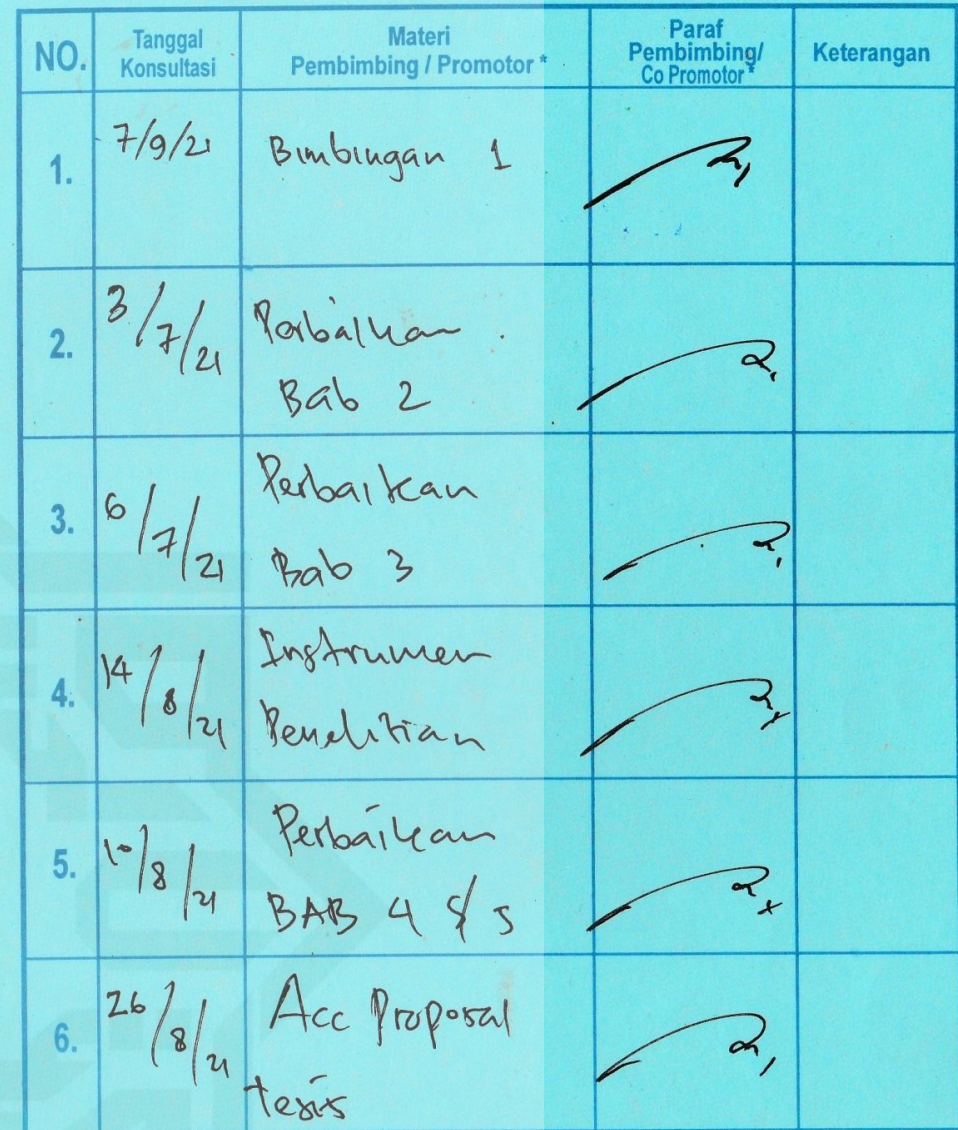 NO. Tanggal Konsultasi Materi Pembimbing / Promotor * Paraf Pembimbing/ Co Promotor * Keterangan
1. 7/9/21 Bimbingan 1
2. 3/7/21 Perbaikan
Bab 2
3. 6/7/21 Perbaikan
Bab 3
4. 14/8/21 Instrumen
Penelitian
5. 10/8/21 Perbaikan
BAB 4 & 5
6. 26/8/21 Acc Proposal
tesis